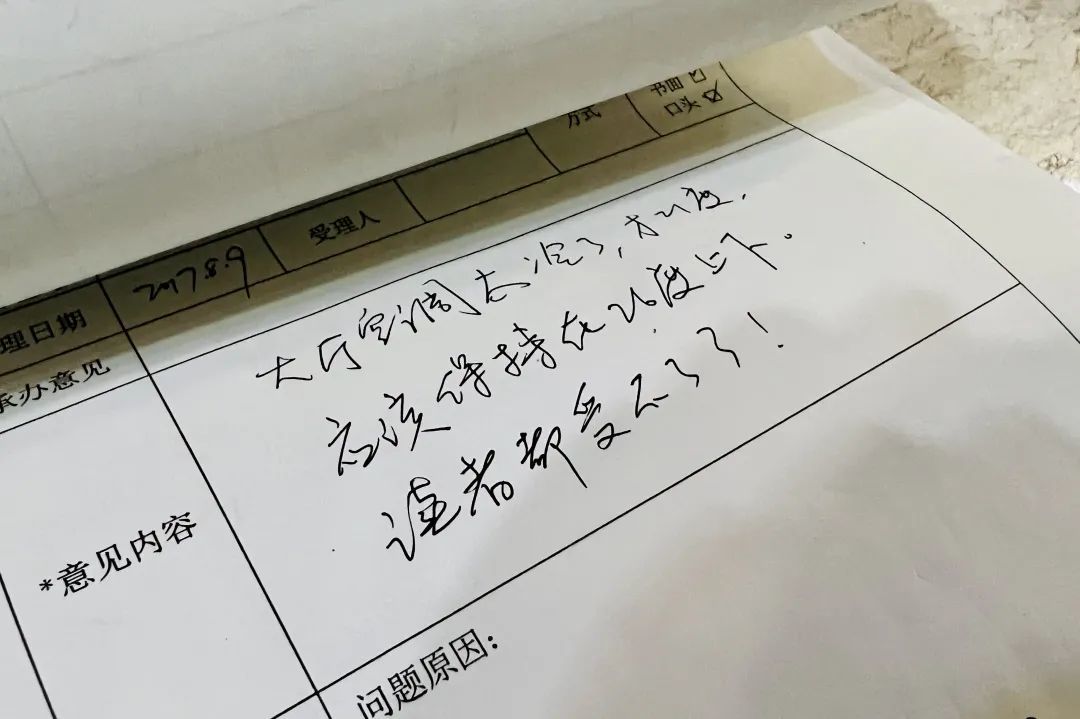 书面☑
方式 口头☑
理日期 2017.8.9 受理人
承办意见
大厅空调太了,才22度.
应该保持在26度上下。
读者都受不了了!
*意见内容
问题原因: